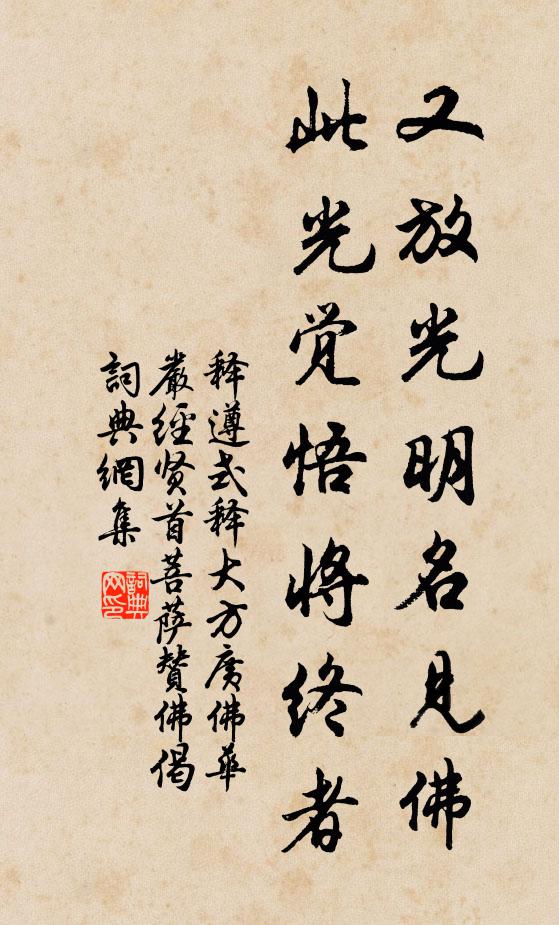 又放光明名见佛
此光觉悟将终者
释遵式释大方广佛华
严經贤首菩萨赞佛偈
詞典網集
詞典
网印